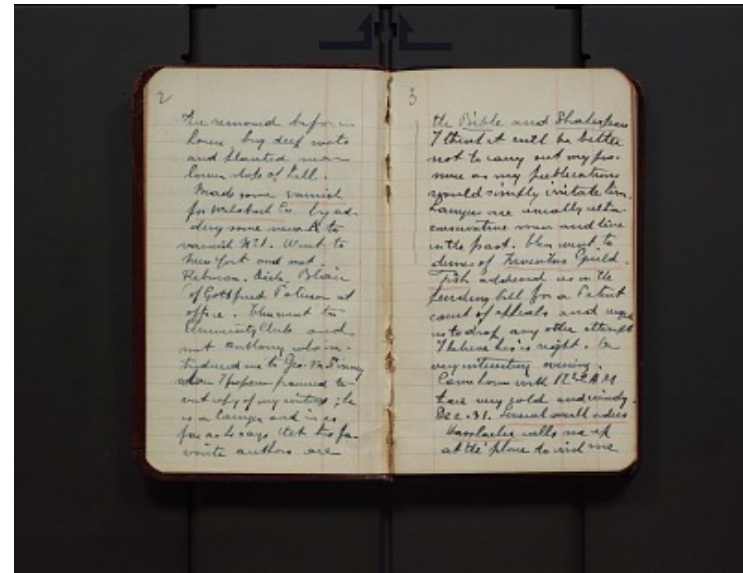 2
removed before
lower, big deep roots
and planted near
lower slope of hill.
Made some varnish
for Welsbach Co by ad-
ding some to
varnish No 1. Went to
New York and met
Dick, Blair
of Gottfried at
office. Then went to
Club and
met Anthony who in-
troduced me to Geo.
whom I promised to
copy of my ; he
is a lawyer and is as
far as he says that his fa-
vorite authors are
3
the Bible and Shakespeare
I think it will be better
not to carry out my pro-
mise as my publications
would simply irritate him.
Lawyers are usually ultra
conservative men and live
in the past. Then went to
dinner of Inventors Guild.
Fish addressed us on the
pending bill for a Patent
court of appeals and urges
us to drop any other attempt
I believe he is right. A
very interesting evening.
Came home with 12 AM
very cold and windy.
Dec. 31. Several
Hasslacher calls me up
at the phone to wish me